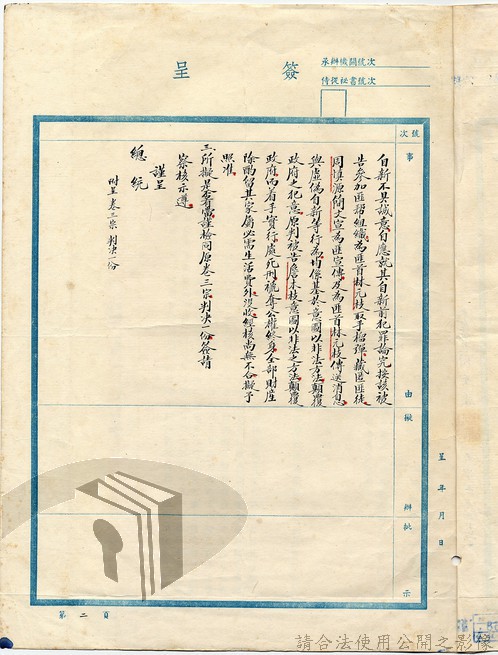 簽呈
承辦機關號次
侍從祕書號次
號次
事由
擬辦
批示
自新不具誠意自應就其自新前犯罪論究按該被
告參加匪幫組織為匪首林元枝取手榴彈藏匪匪徒
周慎源簡文宣為匪宣傳及為匪首林元枝傳送消息
與虛偽自新等行為均係基於意圖以非法方法顛覆
政府之犯意原判被告詹木枝意圖以非法之方法顛覆
政府而着手實行處死刑褫奪公權終身全部財產
除酌留其家屬必需生活費外沒收經核尚無不合擬予
照准
三所擬是否有當謹檢同原卷三宗判決一份簽請
察核示遵
謹呈
總統
附呈卷三宗判決一份
呈 年 月 日
第二頁
請合法使用公開之影像